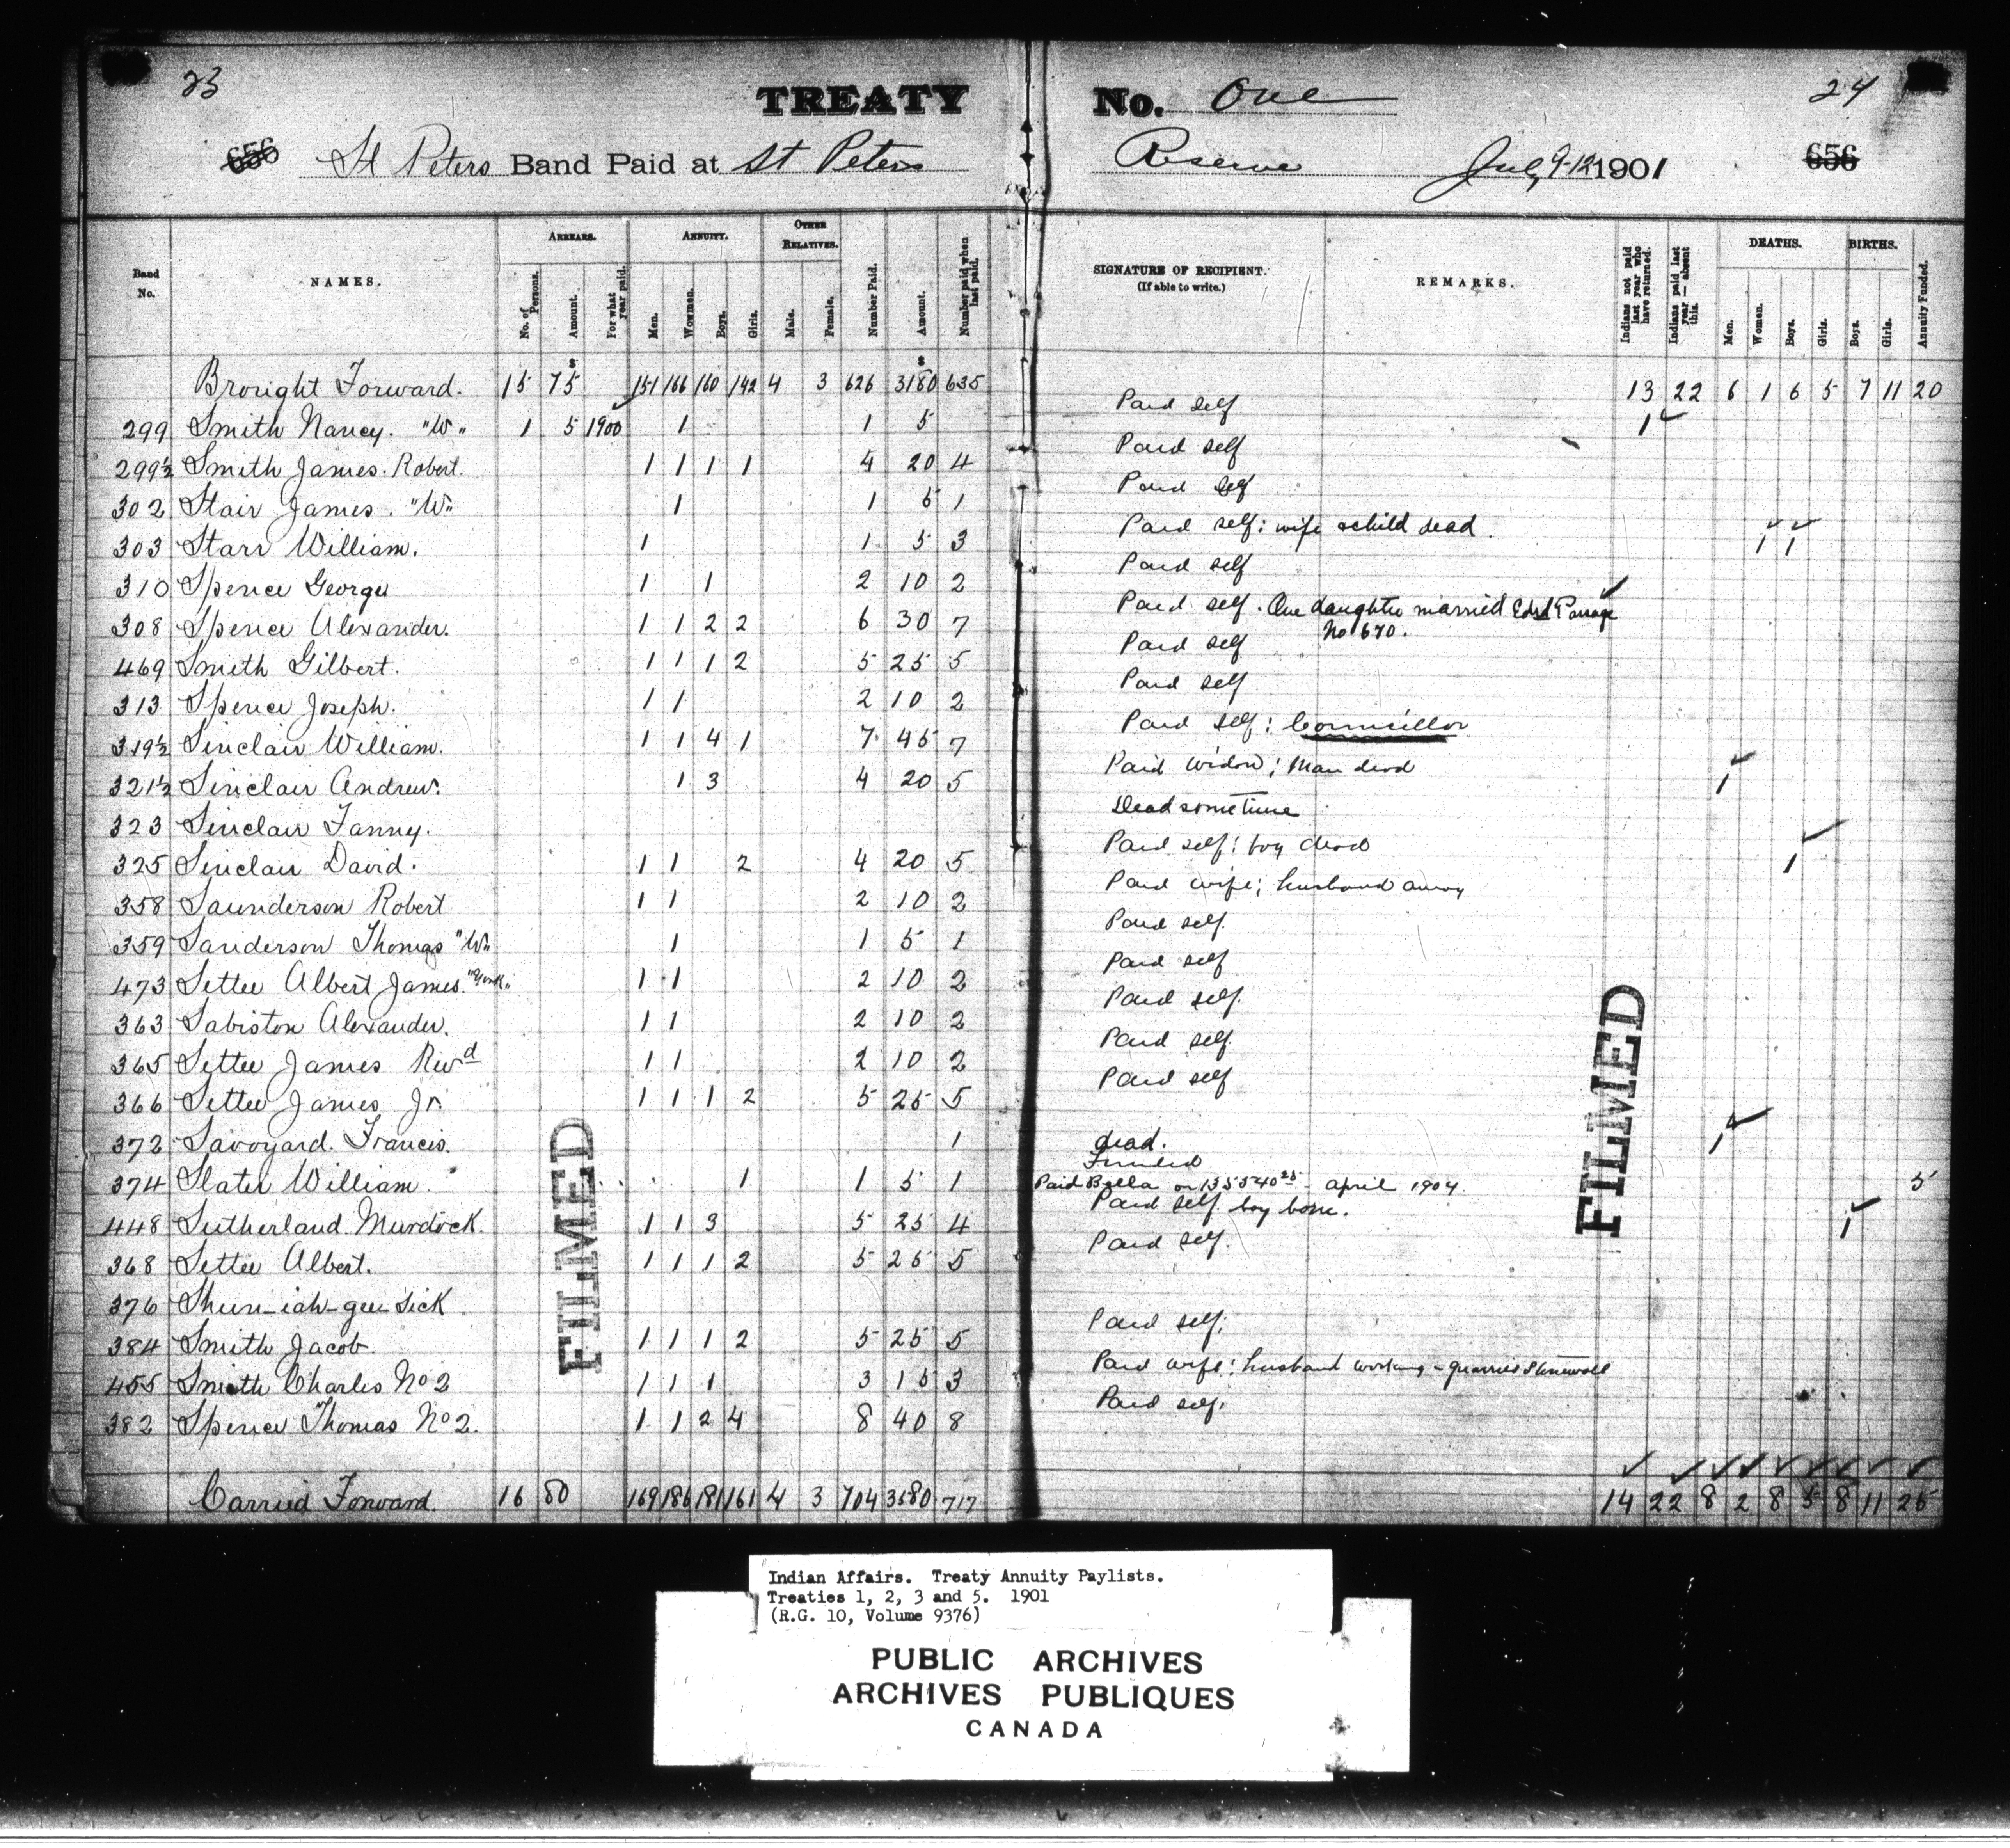 23 TREATY No. One 24
656 St Peters Band Paid at St Peters Reserve July 9-12 1901 656
Band No. NAMES. ARREARS. No. of Persons. Amount. For what year paid. ANNUITY. Men. Women. Boys. Girls. OTHER RELATIVES. Male. Female. Number Paid. Amount. Number paid when last paid. SIGNATURE OF RECIPIENT. (If able to write.) REMARKS. Indians not paid last year who have returned. Indians paid last year — absent this. DEATHS. Men. Women. Boys. Girls. BIRTHS. Boys. Girls. Annuity Funded.
Brought Forward. 15 $75 151 166 160 142 4 3 626 $3180 635 13 22 6 1 6 5 7 11 20
299 Smith Nancy. "W" 1 5 1900 1 1 5 Paid self 1
299½ Smith James Robert. 1 1 1 1 4 20 4 Paid self
302 Stair James. "W" 1 1 5 1 Paid self
303 Starr William. 1 1 5 3 Paid self: wife & child dead. 1 1
310 Spence George 1 1 2 10 2 Paid self
308 Spence Alexander. 1 1 2 2 6 30 7 Paid self. One daughter married Edwd Passage No 670.
469 Smith Gilbert. 1 1 1 2 5 25 5 Paid self
313 Spence Joseph. 1 1 2 10 2 Paid self
319½ Sinclair William. 1 1 4 1 7 45 7 Paid self: Councillor
321½ Sinclair Andrew. 1 3 4 20 5 Paid widow; man dead 1
323 Sinclair Fanny. Dead sometime
325 Sinclair David. 1 1 2 4 20 5 Paid self: boy dead 1
358 Saunderson Robert 1 1 2 10 2 Paid wife; husband away
359 Sanderson Thomas "W" 1 1 5 1 Paid self.
473 Settee Albert James. "York" 1 1 2 10 2 Paid self
363 Sabiston Alexander. 1 1 2 10 2 Paid self.
365 Settee James Revd 1 1 2 10 2 Paid self
366 Settee James Jr. 1 1 1 2 5 25 5 Paid self
372 Savoyard Francis. 1 dead. 1
374 Slater William. 1 1 5 1 Funded 5
Paid Bella on 135540 25 - April 1904.
448 Sutherland Murdock. 1 1 3 5 25 4 Paid self boy born. 1
368 Settee Albert. 1 1 1 2 5 25 5 Paid self.
376 Shun-iah-gee-sick
384 Smith Jacob. 1 1 1 2 5 25 5 Paid self.
455 Smith Charles No 2 1 1 1 3 15 3 Paid wife: husband working - quarries Stonewall
382 Spence Thomas No 2. 1 1 2 4 8 40 8 Paid self.
Carried Forward. 16 80 169 186 181 161 4 3 704 3580 717 14 22 8 2 8 5 8 11 25
FILMED
FILMED
Indian Affairs. Treaty Annuity Paylists.
Treaties 1, 2, 3 and 5. 1901
(R.G. 10, Volume 9376)
PUBLIC ARCHIVES
ARCHIVES PUBLIQUES
CANADA